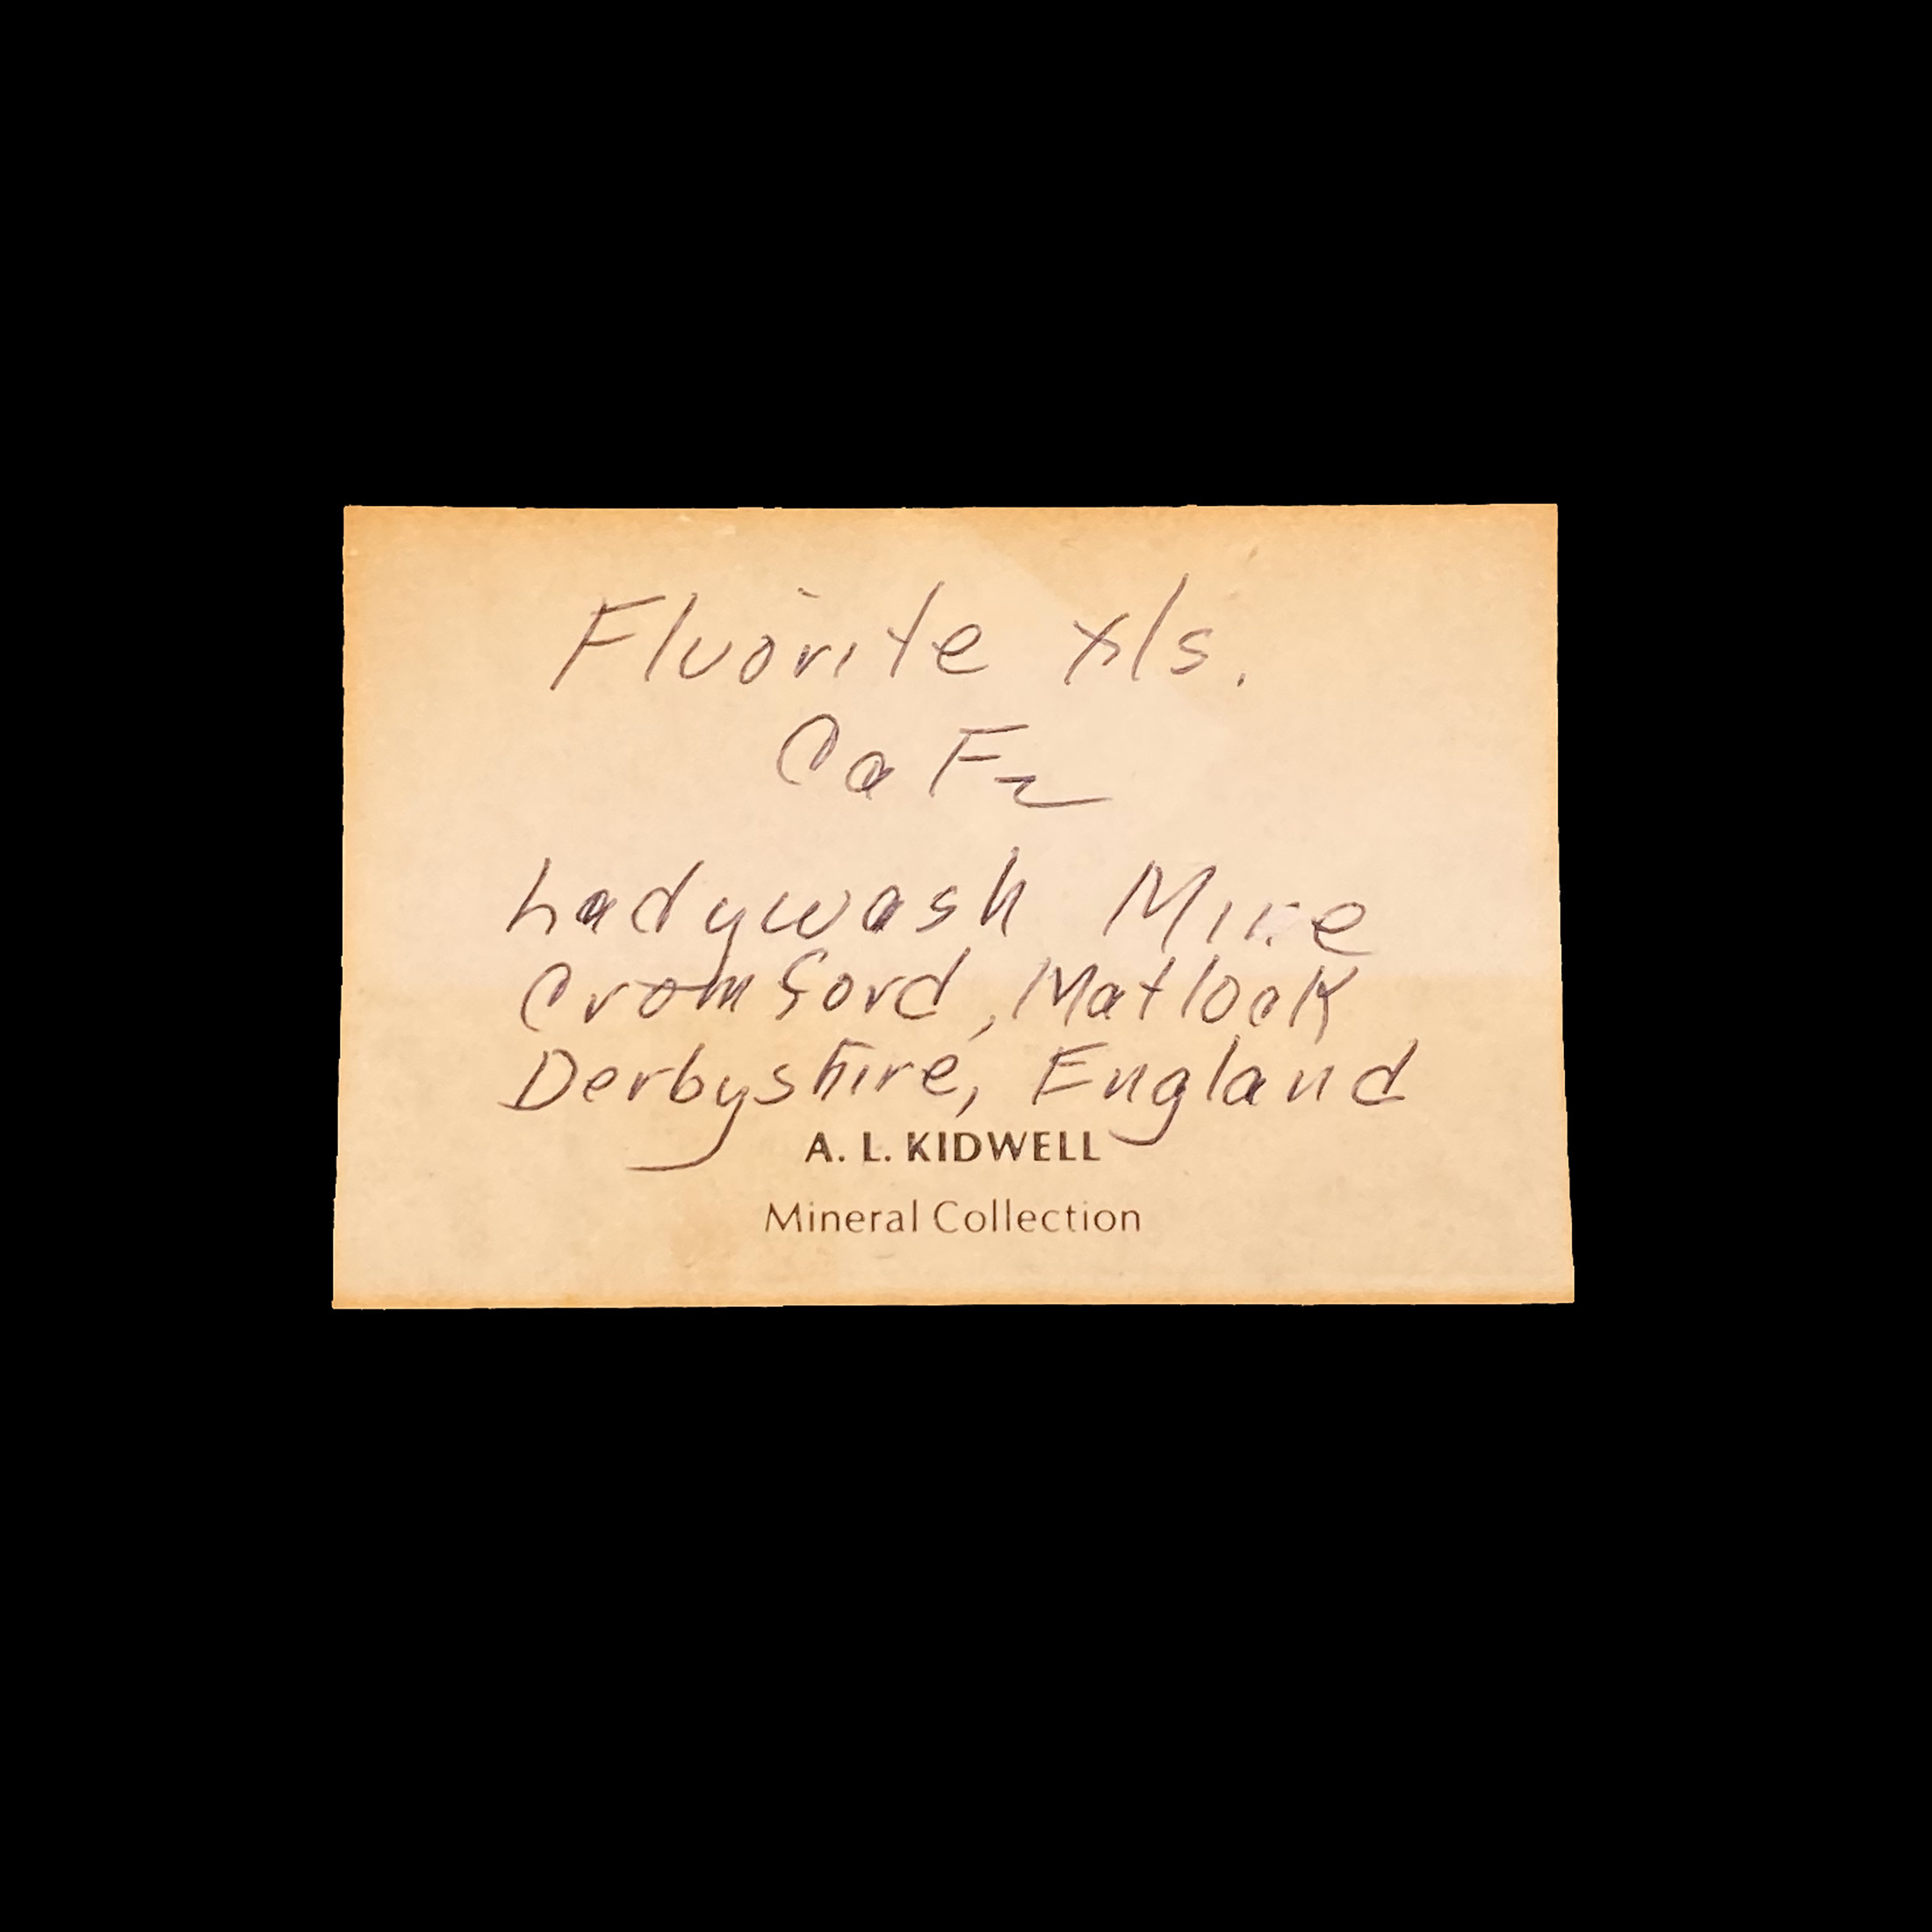 Fluorite xls.
CaF₂
Ladywash Mine
Cromford, Matlock
Derbyshire, England
A. L. KIDWELL
Mineral Collection